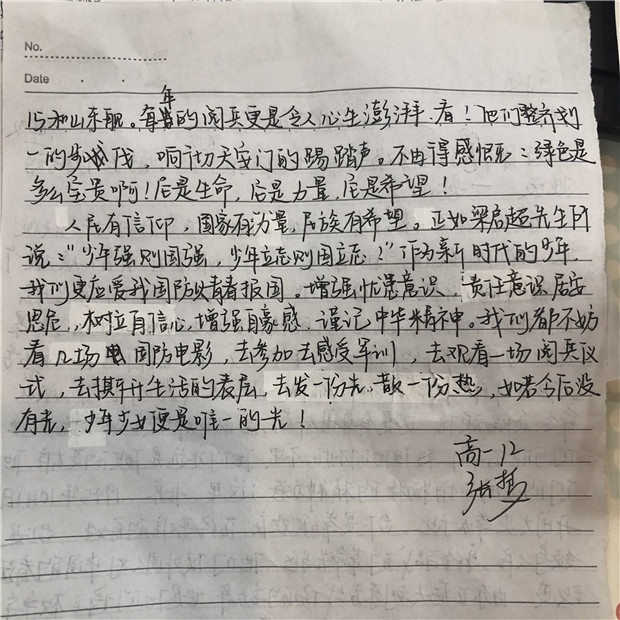 No.
Date
年
15和山东舰。每的阅兵更是令人心生澎湃.看！他们整齐划
一的步伐，响彻天安门的踢踏声。不由得感慨：绿色是
多么宝贵啊！它是生命，它是力量，它是希望！
人民有信仰，国家有力量，民族有希望。正如梁启超先生所
说：“少年强则国强，少年立志则国立志！”作为新时代的少年，
我们更应爱我国防以青春报国。增强忧患意识，责任意识居安
思危，树立自信心，增强自豪感，谨记中华精神。我们都不妨
看几场国防电影，去参加去感受军训，去观看一场阅兵仪
式，去揭开生活的表层，去发一份光，散一份热，如若今后没
有光，少年少女便是唯一的光！
高一12
张梦